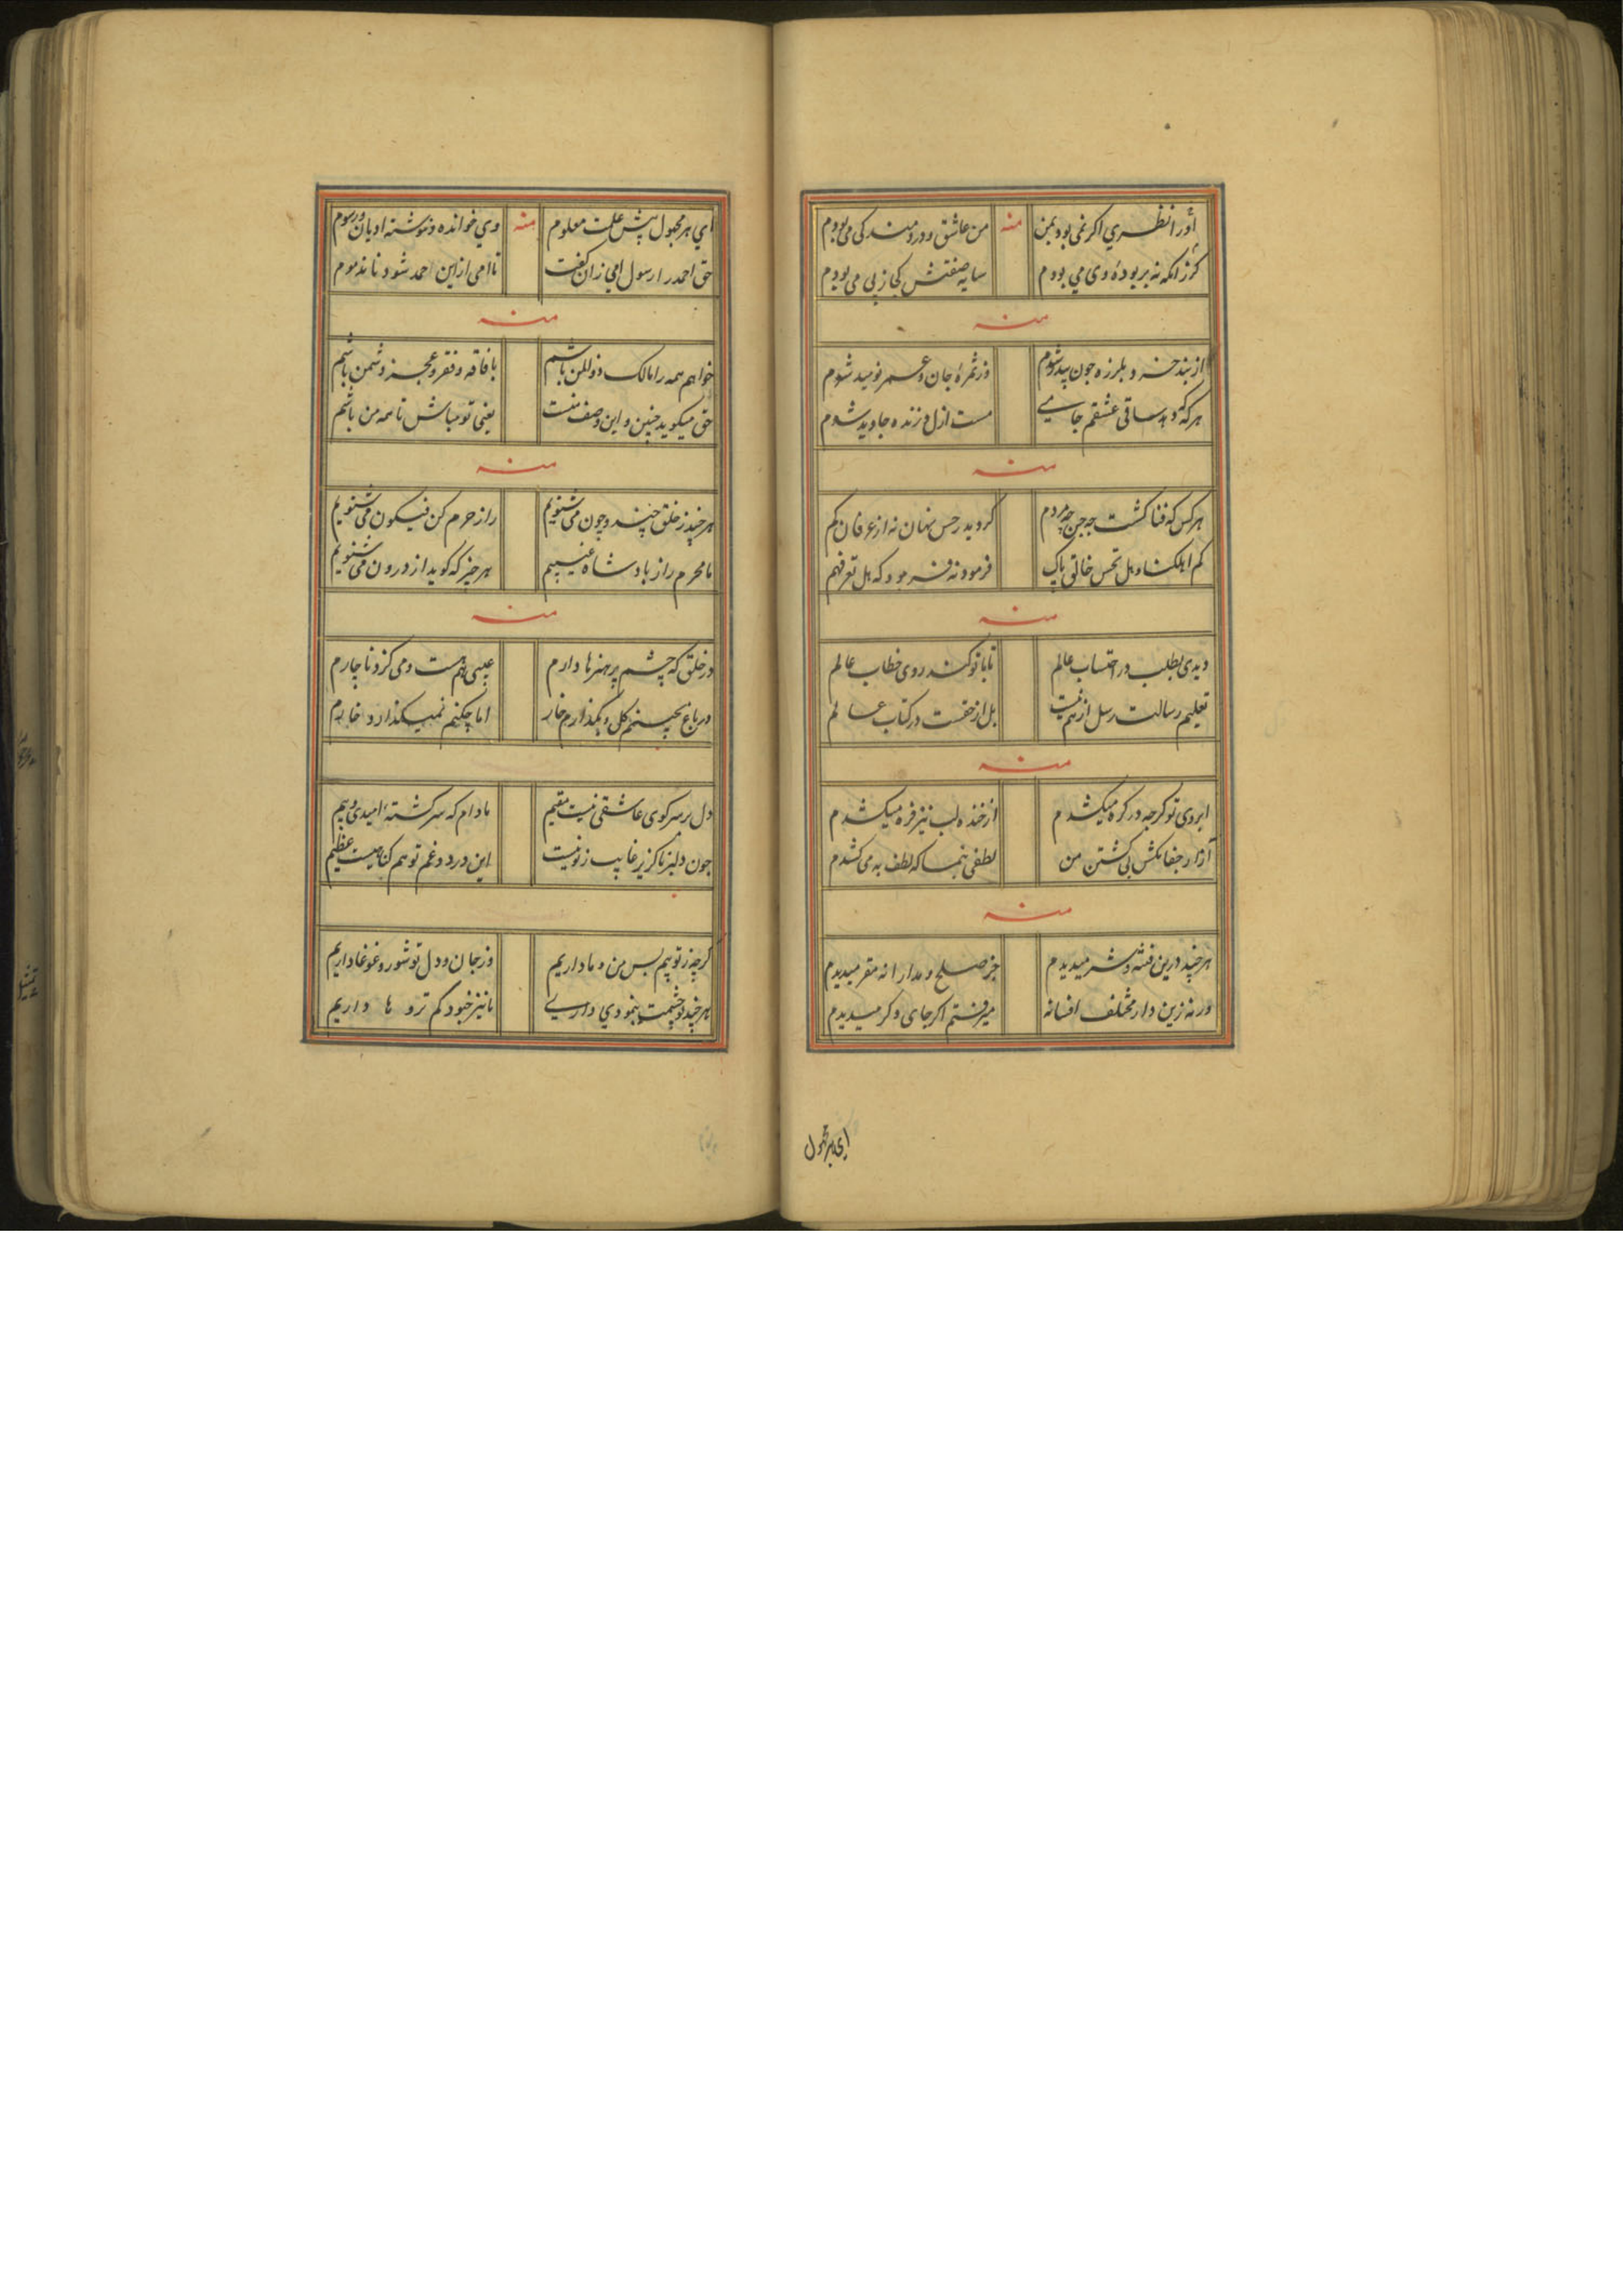 او را نظری اکر نمی بود بمن منه من عاشق و دردمند کی می بودم
کر زانکه نه بر بودهٔ وی می بودم سایه صفتش کجا ز پی می بودم
منه
از بند خزد بلرزه جون بید شوم وز ثمرهٔ جان و عمر نومید شوم
هر که دهد ساقی عشقم جامی مست ازل و زنده جاوید شوم
منه
هر کس که فنا کشت جه جن جه مردم کردید ز حس نهان نه از عرفان کم
کم اهلکنا و هل تحس خالق پاک فرمود نه فرمود که هل تعرفهم
منه
دیدی بطلب در احتساب عالم تا با تو کند روی خطاب عالم
تعلیم رسالت رسل از هم نیست بل از حقست در کتاب عالم
منه
ابروی تو کرجه در کره میکشدم از خنده لب نیز فره میکشدم
آزار جفا مکش پی کشتن من لطفی بنما که لطف به می کشدم
منه
هر چند درین فتنه و شر میدیدم جز صلح و مدارا نه مقر میدیدم
ورنه زین دار مختلف افسانه میرفتم اکر جای دکر میدیدم
ای هر مجهول
ای هر مجهول پیش علمت معلوم منه وی خوانده و نوشته ادیان و رسوم
حق احمد را رسول امی زان گفت تا امی ازاین احمد شود نا مذموم
منه
خواهم همه را مالک ذوللن باشم با فاقه و فقر و عجز دشمن باشم
حق میکوید جنین و این وصف منست یعنی تو مباش تا همه من باشم
منه
هر چند ز خلق چند و چون می شنویم راز حرم کن فیکون می شنویم
ما محرم راز بادشاه غیبیم هر جیز که کوید از درون می شنویم
منه
در خلق که چشم پر هنرها دارم عیبی هم هست و می کزد ناچارم
در باغ بچینم کلی و بگذارم خار اما چکنم نمیکذارد خارم
دل بر سر کوی عاشقی نیست مقیم مادام که سرکشتهٔ امیدی و بیم
جون دلبر ناکزیر غایب ز تو نیست این درد و غم تو هم کناهیست عظیم
کرچه ز تو بیم بس من و ما داریم وز جان و دل تو شور و غوغا داریم
هر چند تو چشمت بنمودی داری ما نیز خبود کم ترو ها داریم